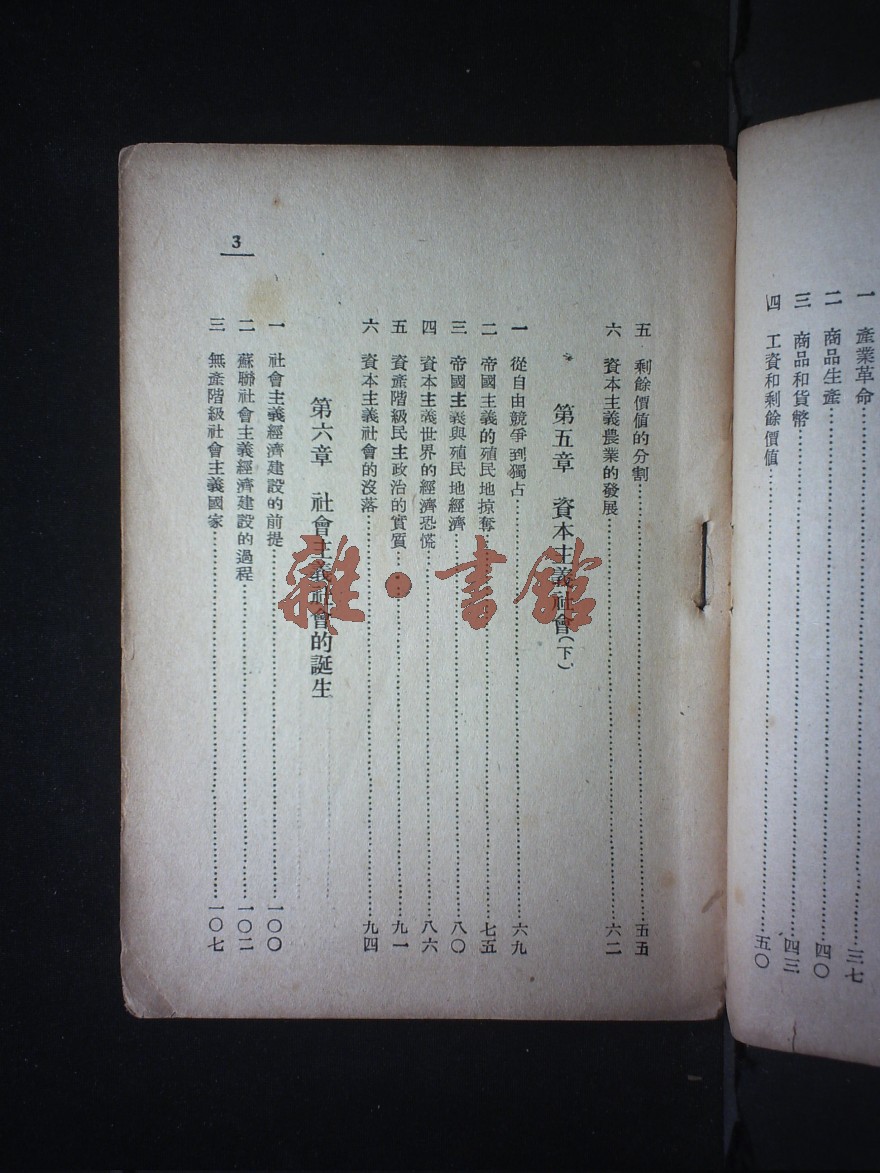 一 產業革命……三七
二 商品生產……四〇
三 商品和貨幣……四三
四 工資和剩餘價值……五〇
五 剩餘價值的分割……五五
六 資本主義農業的發展……六二
第五章 資本主義社會(下)
一 從自由競爭到獨占……六九
二 帝國主義的殖民地掠奪……七五
三 帝國主義與殖民地經濟……八〇
四 資本主義世界的經濟恐慌……八六
五 資產階級民主政治的實質……九一
六 資本主義社會的沒落……九四
第六章 社會主義社會的誕生
一 社會主義經濟建設的前提……一〇〇
二 蘇聯社會主義經濟建設的過程……一〇二
三 無產階級社會主義國家……一〇七
3
雜·書館